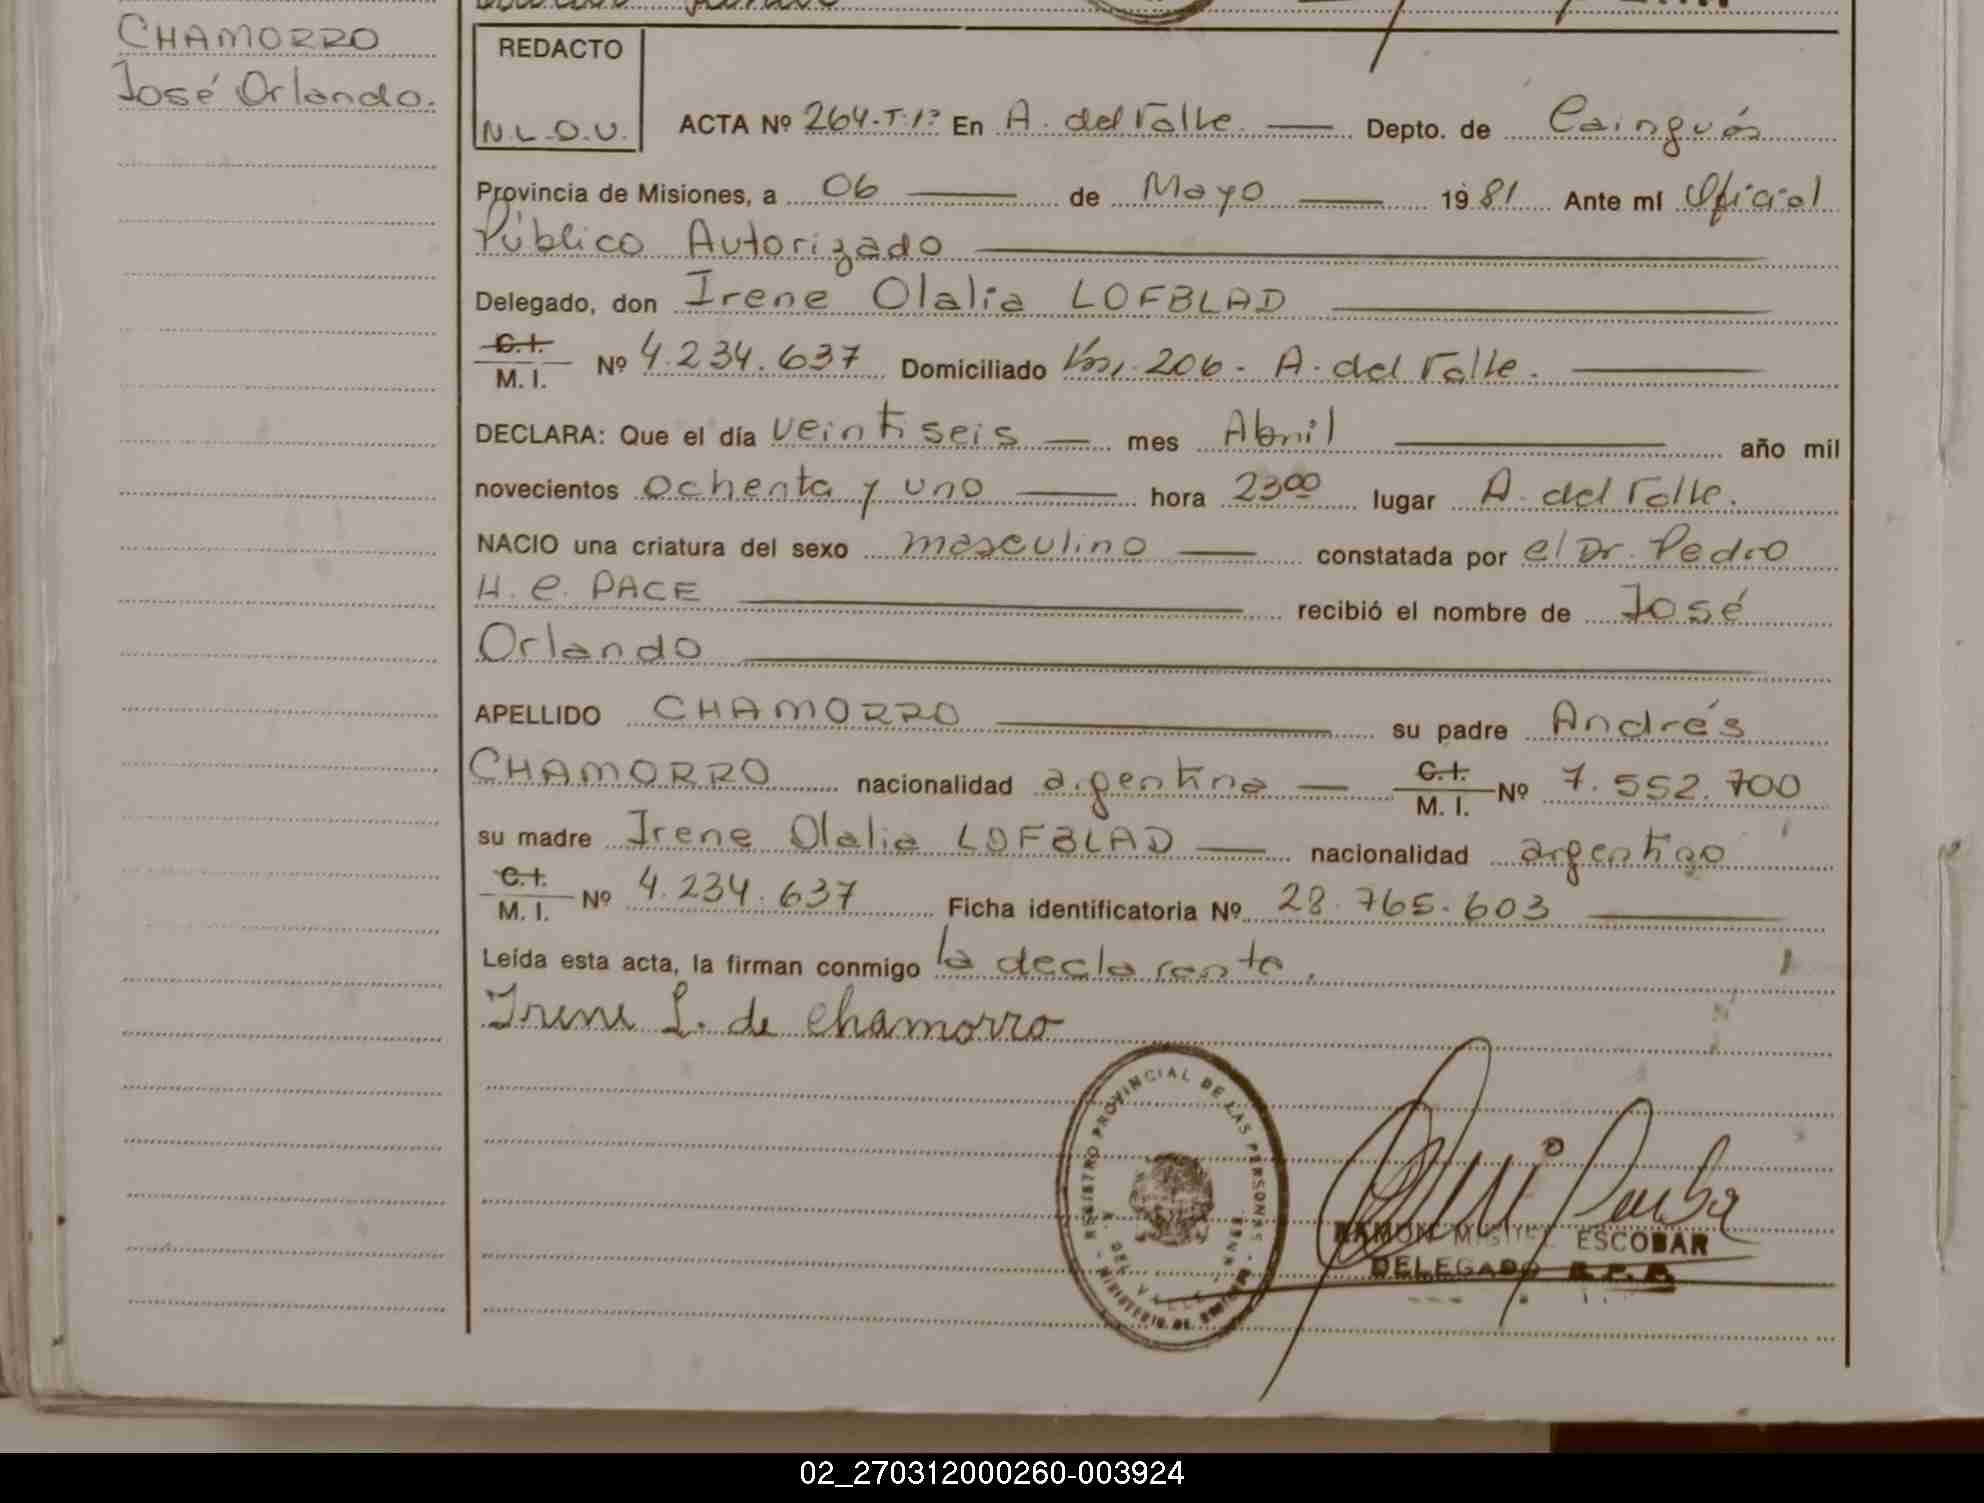 CHAMORRO
José Orlando.
REDACTO
N.L.O.U.
ACTA Nº 264-T.1º En A. del Valle. Depto. de Cainguás
Provincia de Misiones, a 06 de Mayo 1981 Ante mí Oficial
Público Autorizado
Delegado, don Irene Olalia LOFBLAD
C.I.
M. I. Nº 4.234.637 Domiciliado Km. 206 - A. del Valle.
DECLARA: Que el día veintiseis mes Abril año mil
novecientos ochenta y uno hora 23⁰⁰ lugar A. del Valle.
NACIO una criatura del sexo masculino constatada por el Dr. Pedro
H. C. PACE recibió el nombre de José
Orlando
APELLIDO CHAMORRO su padre Andrés
CHAMORRO nacionalidad argentina C.I. M. I. Nº 7.552.700
su madre Irene Olalia LOFBLAD nacionalidad argentina
C.I.
M. I. Nº 4.234.637 Ficha identificatoria Nº 28.765.603
Leída esta acta, la firman conmigo la declarante.
Irene L. de Chamorro
REGISTRO PROVINCIAL DE LAS PERSONAS
A. DEL VALLE
MINISTERIO DE
RAMON MIGUEL ESCOBAR
DELEGADO R.P.P.
02_270312000260-003924